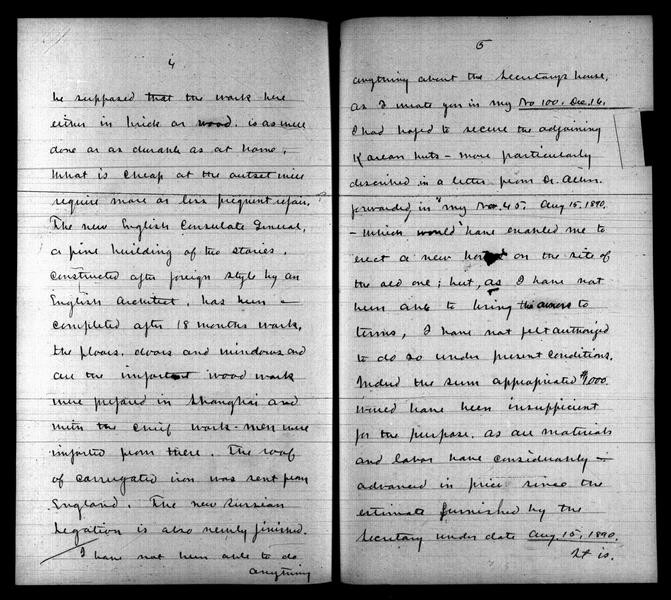 4
be supposed that the work here
either in brick or wood. is as well
done or as durable as at home.
What is cheap at the outset will
require more or less frequent repair.
The new English Consulate General,
a fine building of two stories,
constructed after foreign style by an
English Architect, has been
completed after 18 months work,
the floors, doors and windows and
all the important wood work
were prepared in Shanghai and
with the chief work-men were
imported from there. The roof
of corrugated iron was sent from
England. The new Russian
Legation is also newly finished.
I have not been able to do
anything
5
anything about the Secretary's house,
as I wrote you in my No 100. Dec. 16.
I had hoped to secure the adjoining
Korean huts - more particularly
described in a letter from Dr. Allen.
forwarded in my No. 45. Aug 15. 1890.
- which would have enabled me to
erect a new house on the site of
the old one; but, as I have not
been able to bring the owners to
terms, I have not felt authorized
to do so under present conditions.
Indeed the sum appropriated $1000
would have been insufficient
for the purpose. as all materials
and labor have considerably -
advanced in price since the
estimate furnished by the
Secretary under date Aug. 15, 1890.
It is.